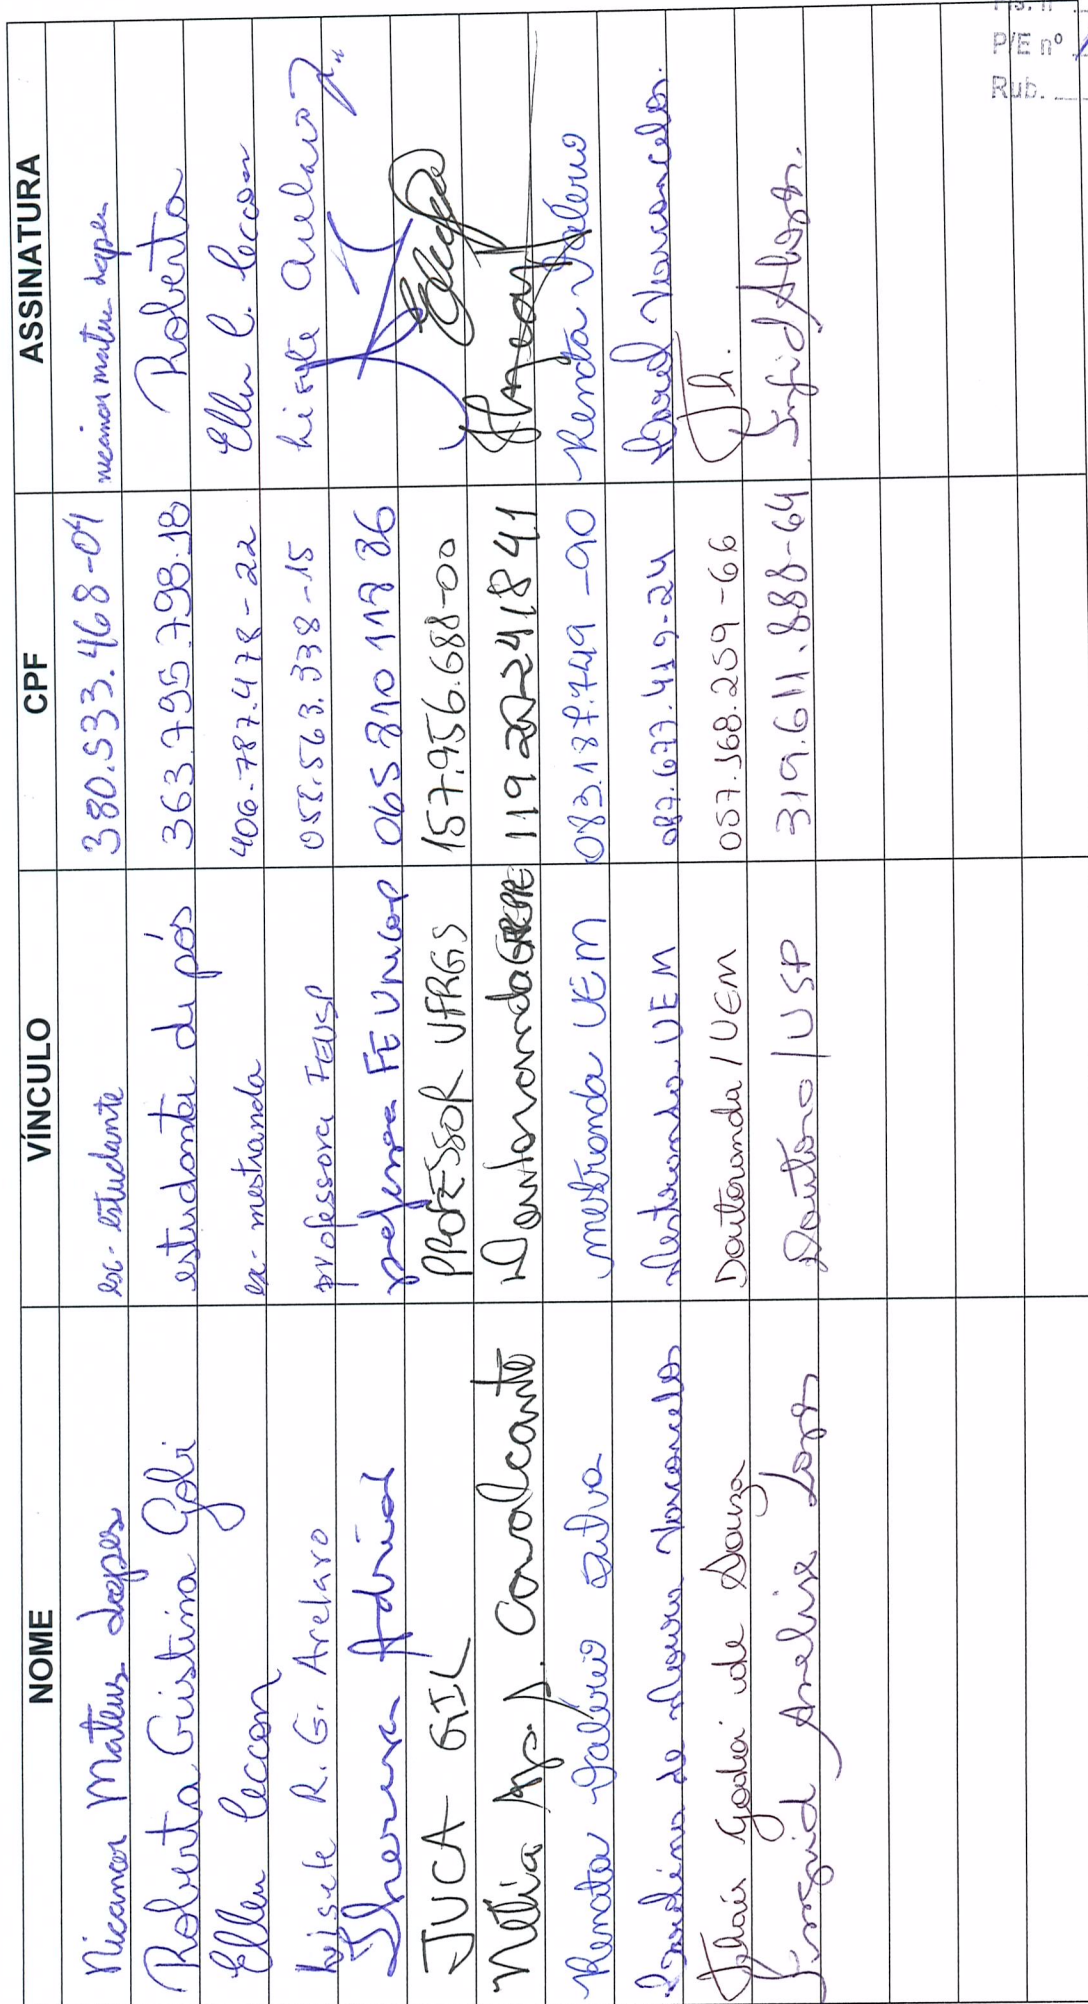 NOME VÍNCULO CPF ASSINATURA
Nicanor Mateus Lopes ex-estudante 380.533.468-04 nicanor mateus lopes
Roberta Cristina Gobi estudante de pós 363.795.798.18 Roberta
Ellen Ceccon ex-mestranda 406.787.478-22 Ellen C. Ceccon
Lisete R. G. Arelaro professora FEUSP 058.563.338-15 Lisete Arelaro
Theresa Adrião professora FE Unicamp 065 810 118 86
JUCA GIL PROFESSOR UFRGS 157.956.688-00
Nélia Ap. Cavalcante Doutoranda 119 202241841
Renata Valério Silva mestranda UEM 083.187.749-90 Renata Valério
de Moura Vasconcelos Mestranda UEM 087.677.419-24 Vasconcelos.
Thais Godoi de Souza Doutoranda / UEM 057.168.259-66 Th.
Ingrid Anelise Lopes Doutora / USP 319.611.888-64 Ingrid
P/E nº
Rub.